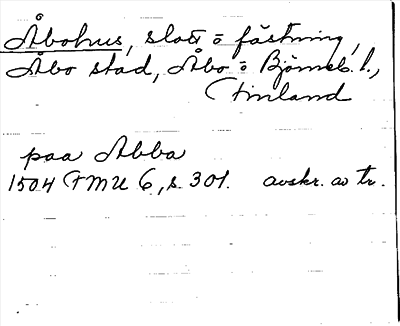 Åbohus, slott o fästning,
Åbo stad, Åbo o Björneb. l.,
Finland
paa Abba
1504 FMU 6, s. 301. avskr. av tr.